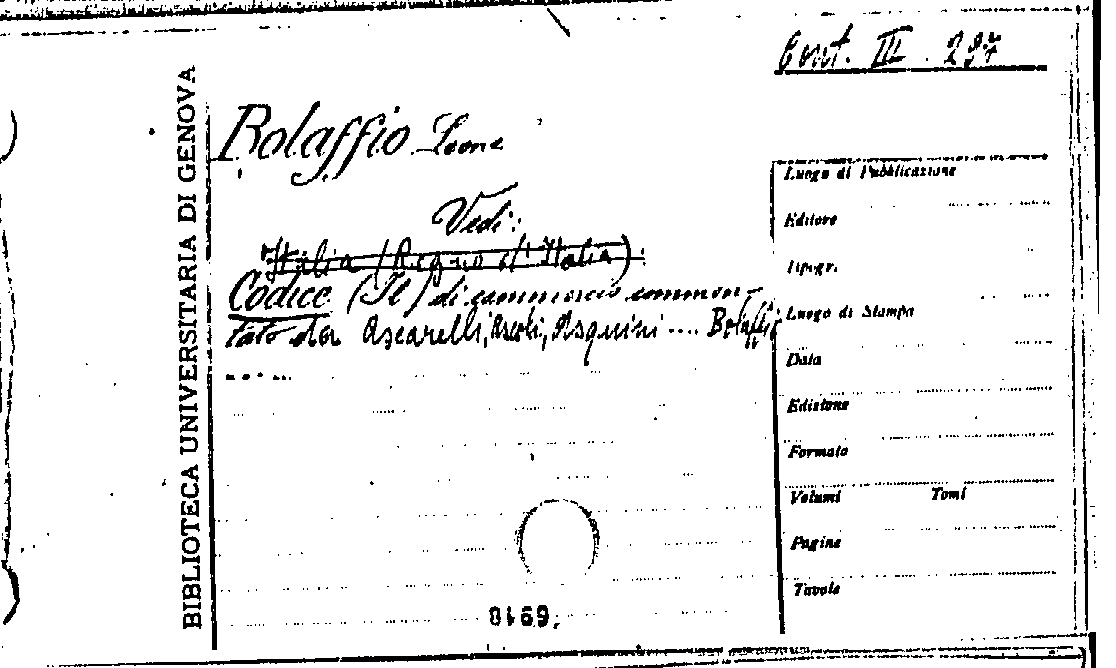 Cont. III. 297
BIBLIOTECA UNIVERSITARIA DI GENOVA
Bolaffio Leone
Vedi:
Italia (Regno d'Italia).
Codice (Il) di commercio commen-
tato da Ascarelli, Ascoli, Asquini .... Bolaffio
.....
Luogo di Pubblicazione
Editore
Tipogr.
Luogo di Stampa
Data
Edizione
Formato
Volumi Tomi
Pagine
Tavole